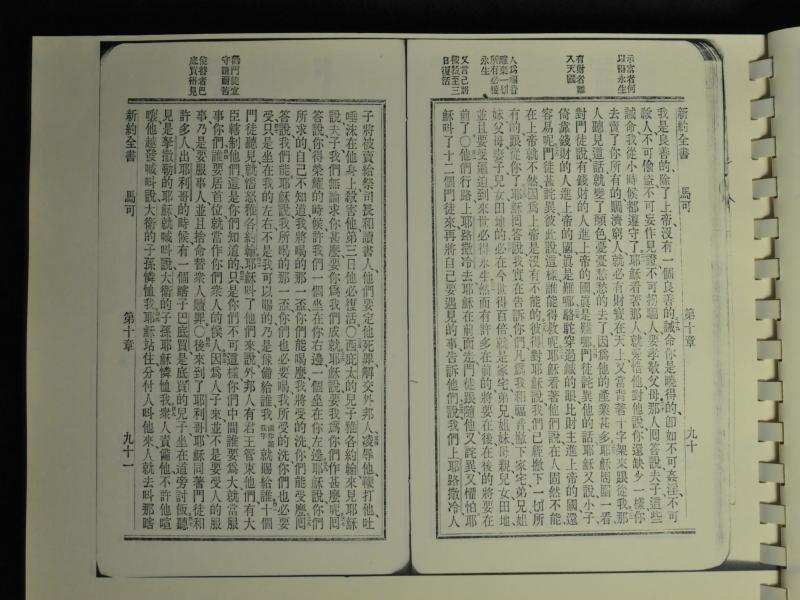 示富者何
以得永生
有財者難
入天國
人爲福音
離棄一切
所有必獲
永生
又言己將
被殺至三
日復活
新約全書 馬可 第十章 九十
我是良善的除了上帝沒有一個良善的誡命你是曉得的卽如不可姦淫不可
殺人不可偷盜不可妄作見證不可拐騙人要孝敬父母那人回答說夫子這些
誡命我從小時候都遵守了耶穌看著那人就愛惜他對他說你還缺少一樣你
去賣了你所有的賙濟窮人就必有財寶在天上又當背著十字架來跟從我那
人聽見這話就變了顏色憂憂愁愁的去了因爲他的產業甚多耶穌周圍一看
對門徒說有錢財的人進上帝的國眞是難哪門徒詫異他的話耶穌又說小子
倚靠錢財的人進上帝的國眞是難哪駱駝穿過鍼的眼比財主進上帝的國還
容易呢門徒甚詫異彼此說這樣誰能得救呢耶穌看著他們說在人固然不能
在上帝就不然因爲上帝是沒有不能的彼得對耶穌說我們已經撇下一切所
有的跟從你了耶穌回答說我實在告訴你們凡爲我和福音撇下家宅弟兄姐
妹父母妻子兒女田地的必在今世得百倍就是家宅弟兄姐妹母親兒女田地
並且要受逼迫到來世必得永生然而有許多在前的將要在後在後的將要在
前了〇他們行路上耶路撒冷去耶穌在前面走門徒跟隨他又詫異又懼怕耶
穌呌了十二個門徒來再將自己要遇見的事告訴他們說我們上耶路撒冷人
戒門徒宜
守謙卑若
使瞽者巴
底買得見
新約全書 馬可 第十章 九十一
子將被賣給祭司長和讀書人他們要定他死罪解交外邦人凌辱他鞭打他吐
唾沫在他身上殺害他第三日他必復活〇西庇太的兒子雅各約翰來見耶穌
說夫子我們無論求你甚麼要你爲我們成就耶穌說要我爲你們作甚麼呢回
答說你得榮耀的時候許我們一個坐在你右邊一個坐在你左邊耶穌說你們
所求的自己不知道我將喝的那一盃你們能喝麼我將受的洗你們能受麼回
答說我們能耶穌說我所喝的那一盃你們也必要喝我所受的洗你們也必要
受只是坐在我的左右不是我可以賜的乃是豫備給誰我就賜給誰十個
門徒聽見就惱怒雅各約翰耶穌呌了他們來說外邦人有君王管束他們有大
臣轄制他們這是你們知道的只是你們不可這樣你們中間誰要爲大就當服
事你們誰要居首位就當作你們衆人的僕人因爲人子來並不是要受人的服
事乃是要服事人並且捨命替衆人贖罪〇後來到了耶利哥耶穌同著門徒和
許多人出耶利哥的時候有一個瞎子巴底買是底買的兒子坐在道旁討飯聽
見是拿撒勒的耶穌就喊呌說大衛的子孫耶穌憐恤我衆人責備他不許他喧
嚷他越發喊呌說大衛的子孫憐恤我耶穌站住分付人呌他來人就去呌那瞎